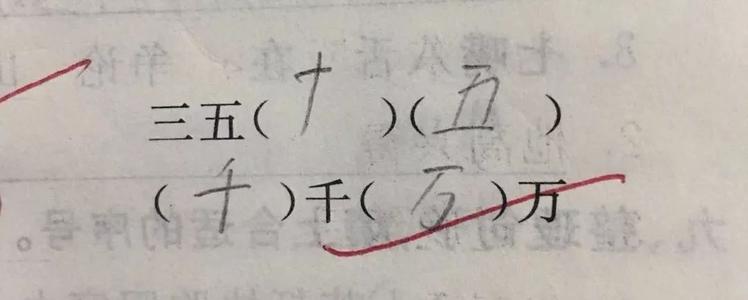 三五(十)(五)
(千)千(万)万